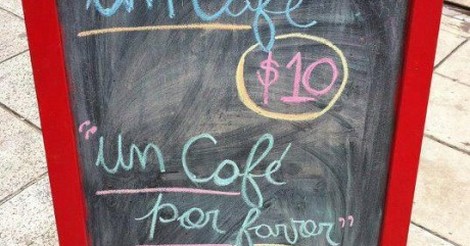 un Café
$10
"un Café
por favor"